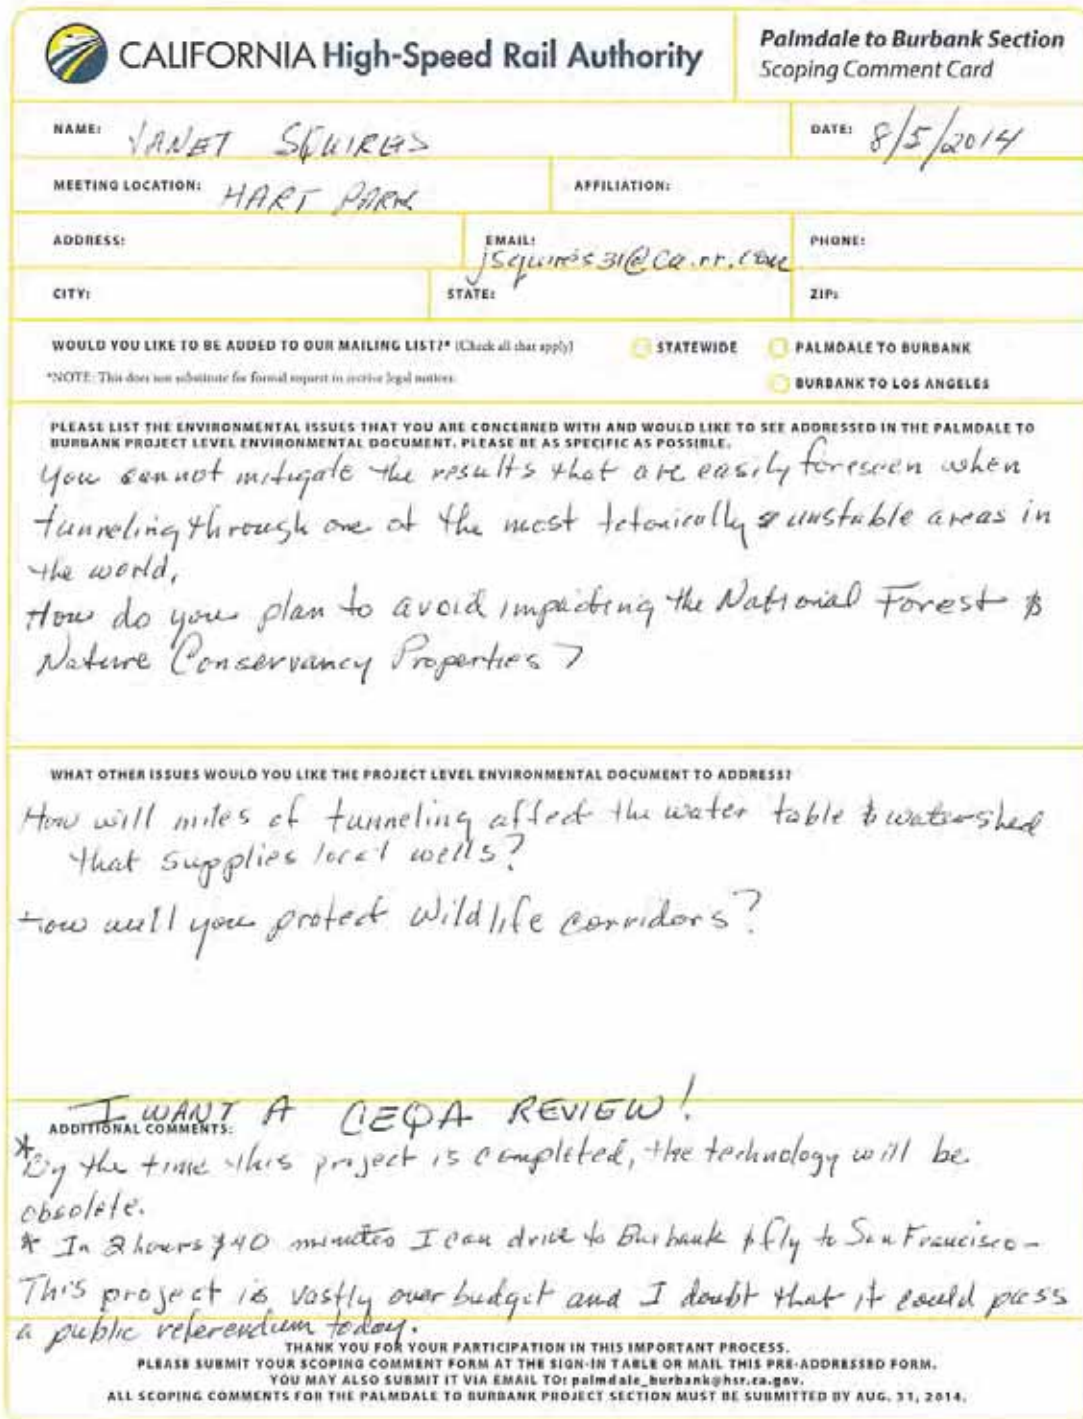 CALIFORNIA High-Speed Rail Authority
Palmdale to Burbank Section
Scoping Comment Card
NAME: JANET SQUIRES
DATE: 8/5/2014
MEETING LOCATION: HART PARK
AFFILIATION:
ADDRESS:
EMAIL: jsquires31@ca.rr.com
PHONE:
CITY:
STATE:
ZIP:
WOULD YOU LIKE TO BE ADDED TO OUR MAILING LIST?* (Check all that apply)
STATEWIDE
PALMDALE TO BURBANK
*NOTE: This does not substitute for formal request to receive legal notices.
BURBANK TO LOS ANGELES
PLEASE LIST THE ENVIRONMENTAL ISSUES THAT YOU ARE CONCERNED WITH AND WOULD LIKE TO SEE ADDRESSED IN THE PALMDALE TO
BURBANK PROJECT LEVEL ENVIRONMENTAL DOCUMENT. PLEASE BE AS SPECIFIC AS POSSIBLE.
You cannot mitigate the results that are easily foreseen when
tunneling through one of the most tetonically unstable areas in
the world,
How do you plan to avoid impacting the National Forest &
Nature Conservancy Properties?
WHAT OTHER ISSUES WOULD YOU LIKE THE PROJECT LEVEL ENVIRONMENTAL DOCUMENT TO ADDRESS?
How will miles of tunneling affect the water table & watershed
that supplies local wells?
How will you protect wildlife corridors?
I WANT A CEQA REVIEW!
ADDITIONAL COMMENTS:
* By the time this project is completed, the technology will be
obsolete.
* In 2 hours & 40 minutes I can drive to Burbank & fly to San Francisco -
This project is vastly over budget and I doubt that it could pass
a public referendum today.
THANK YOU FOR YOUR PARTICIPATION IN THIS IMPORTANT PROCESS.
PLEASE SUBMIT YOUR SCOPING COMMENT FORM AT THE SIGN-IN TABLE OR MAIL THIS PRE-ADDRESSED FORM.
YOU MAY ALSO SUBMIT IT VIA EMAIL TO: palmdale_burbank@hsr.ca.gov.
ALL SCOPING COMMENTS FOR THE PALMDALE TO BURBANK PROJECT SECTION MUST BE SUBMITTED BY AUG. 31, 2014.